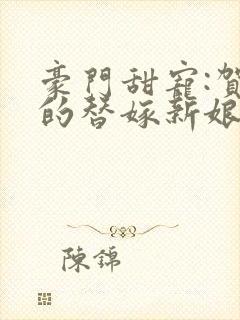 豪門甜寵:賀
的替嫁新娘
陳錦